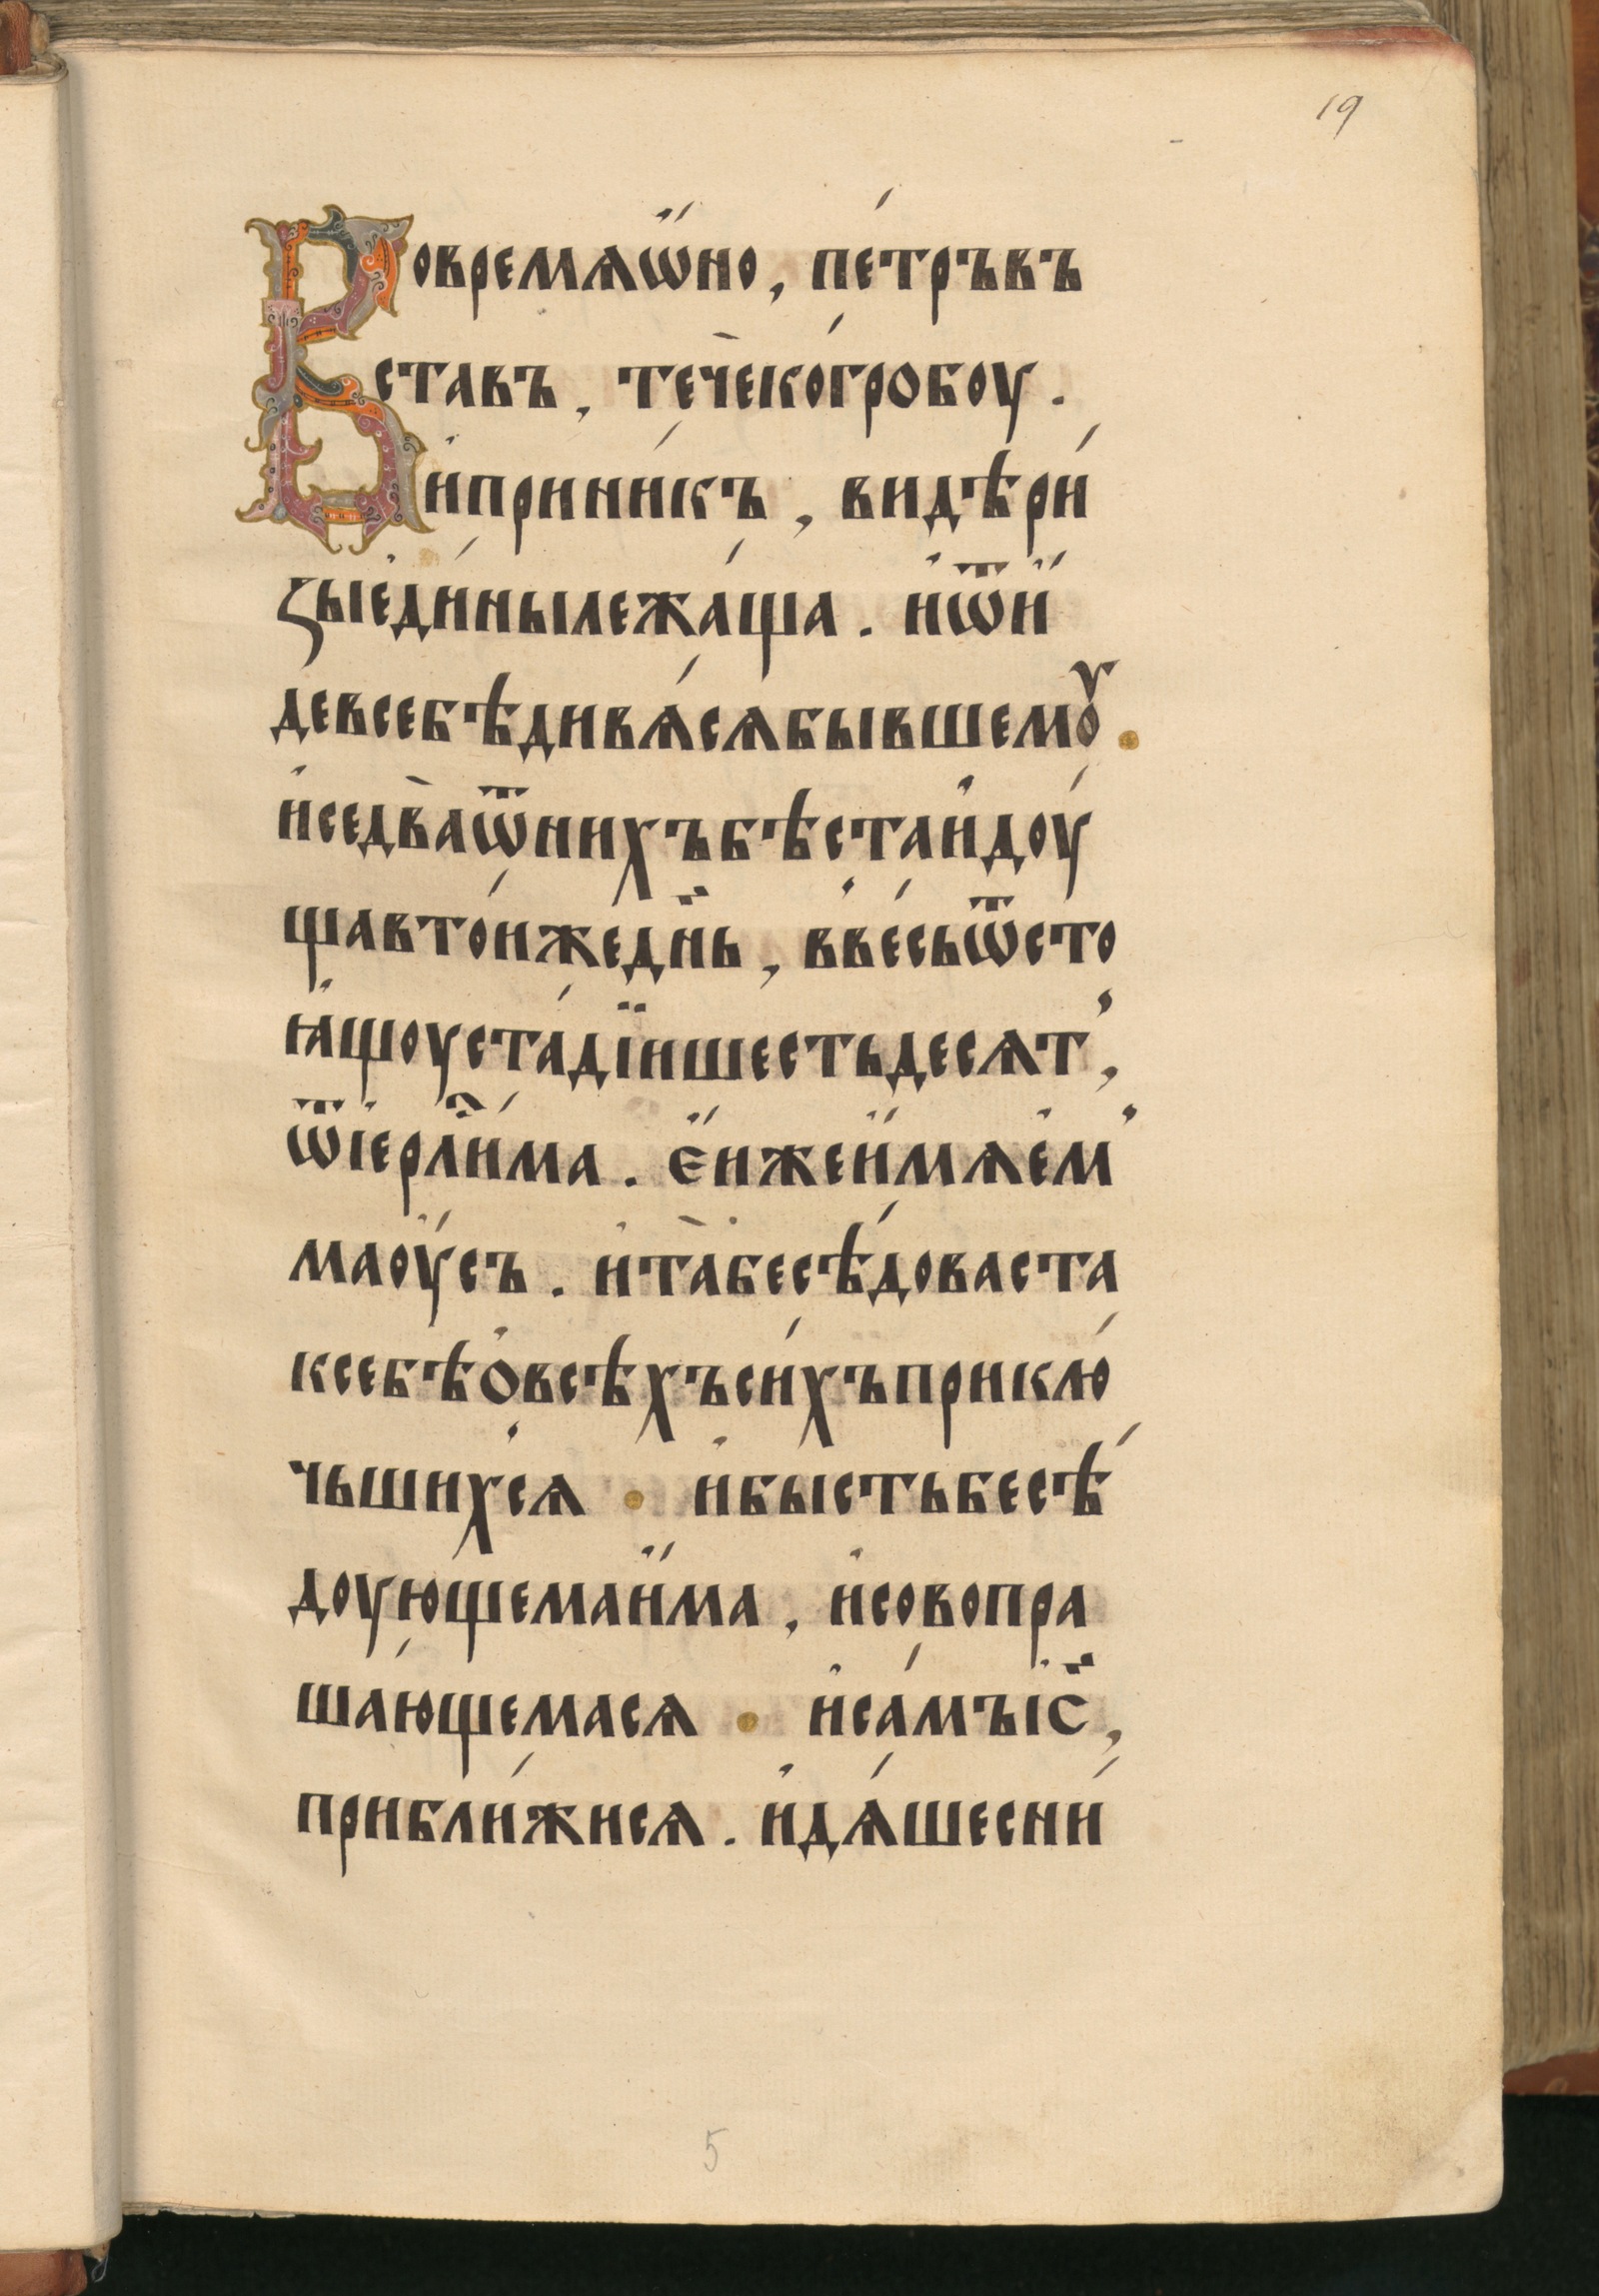 19
Вовремѧѡ҆́но, пе́тръвъ
ставъ, течѐко́гробоу.
и҆прини́къ, видѣри́
ꙁыє҆ди́нылежа́ща. и҆ѿи҆́
девсебѣдивѧ́сѧбывшемꙋ.
и҆седва̀ѿнихъбѣстаи҆доу́
щавто́иждн҃ь, ввє́сьѿсто
ꙗ҆́щоуста́дїишестьдесѧт̾,
ѿі҆ерл҃и́ма. є҆́йжеи҆́мѧє҆м̾
маоу҆́съ. и҆та̀бесѣ́доваста
ксебѣѻ҆всѣхъси́хъприклю́
чьшихсѧ̀. и҆бы́стьбесѣ́
доующемаи҆́ма, и҆совопра
ша́ющемасѧ. и҆са́мъі҆с҃,
прибли́жисѧ. и҆дѧ́шесни́
5